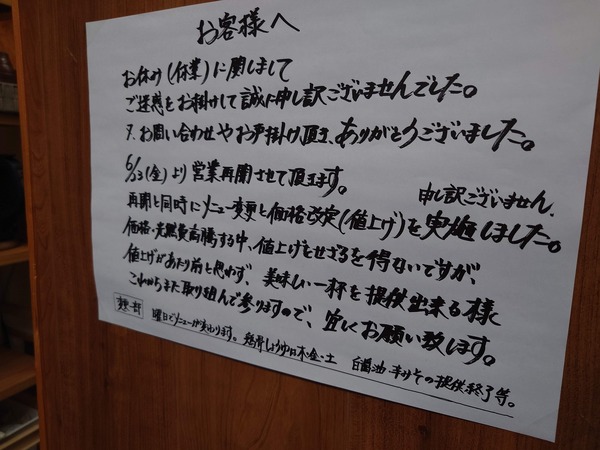 お客様へ
お休み(休業)に関しまして
ご迷惑をお掛けして誠に申し訳ございませんでした。
又、お問い合わせやお声掛け頂き、ありがとうございました。
6/23(金)より営業再開させて頂きます。
申し訳ございません。
再開と同時にメニュー変更と価格改定(値上げ)を実施しました。
価格・光熱費高騰する中、値上げをせざるを得ないですが、
値上げがあたり前と思わず、美味しい一杯を提供出来る様
これからもまた取り組んで参りますので、宜しくお願い致します。
曜日でメニューが変わります。鶏骨しょうゆ日木金・土 白醤油・辛みその提供終了等。